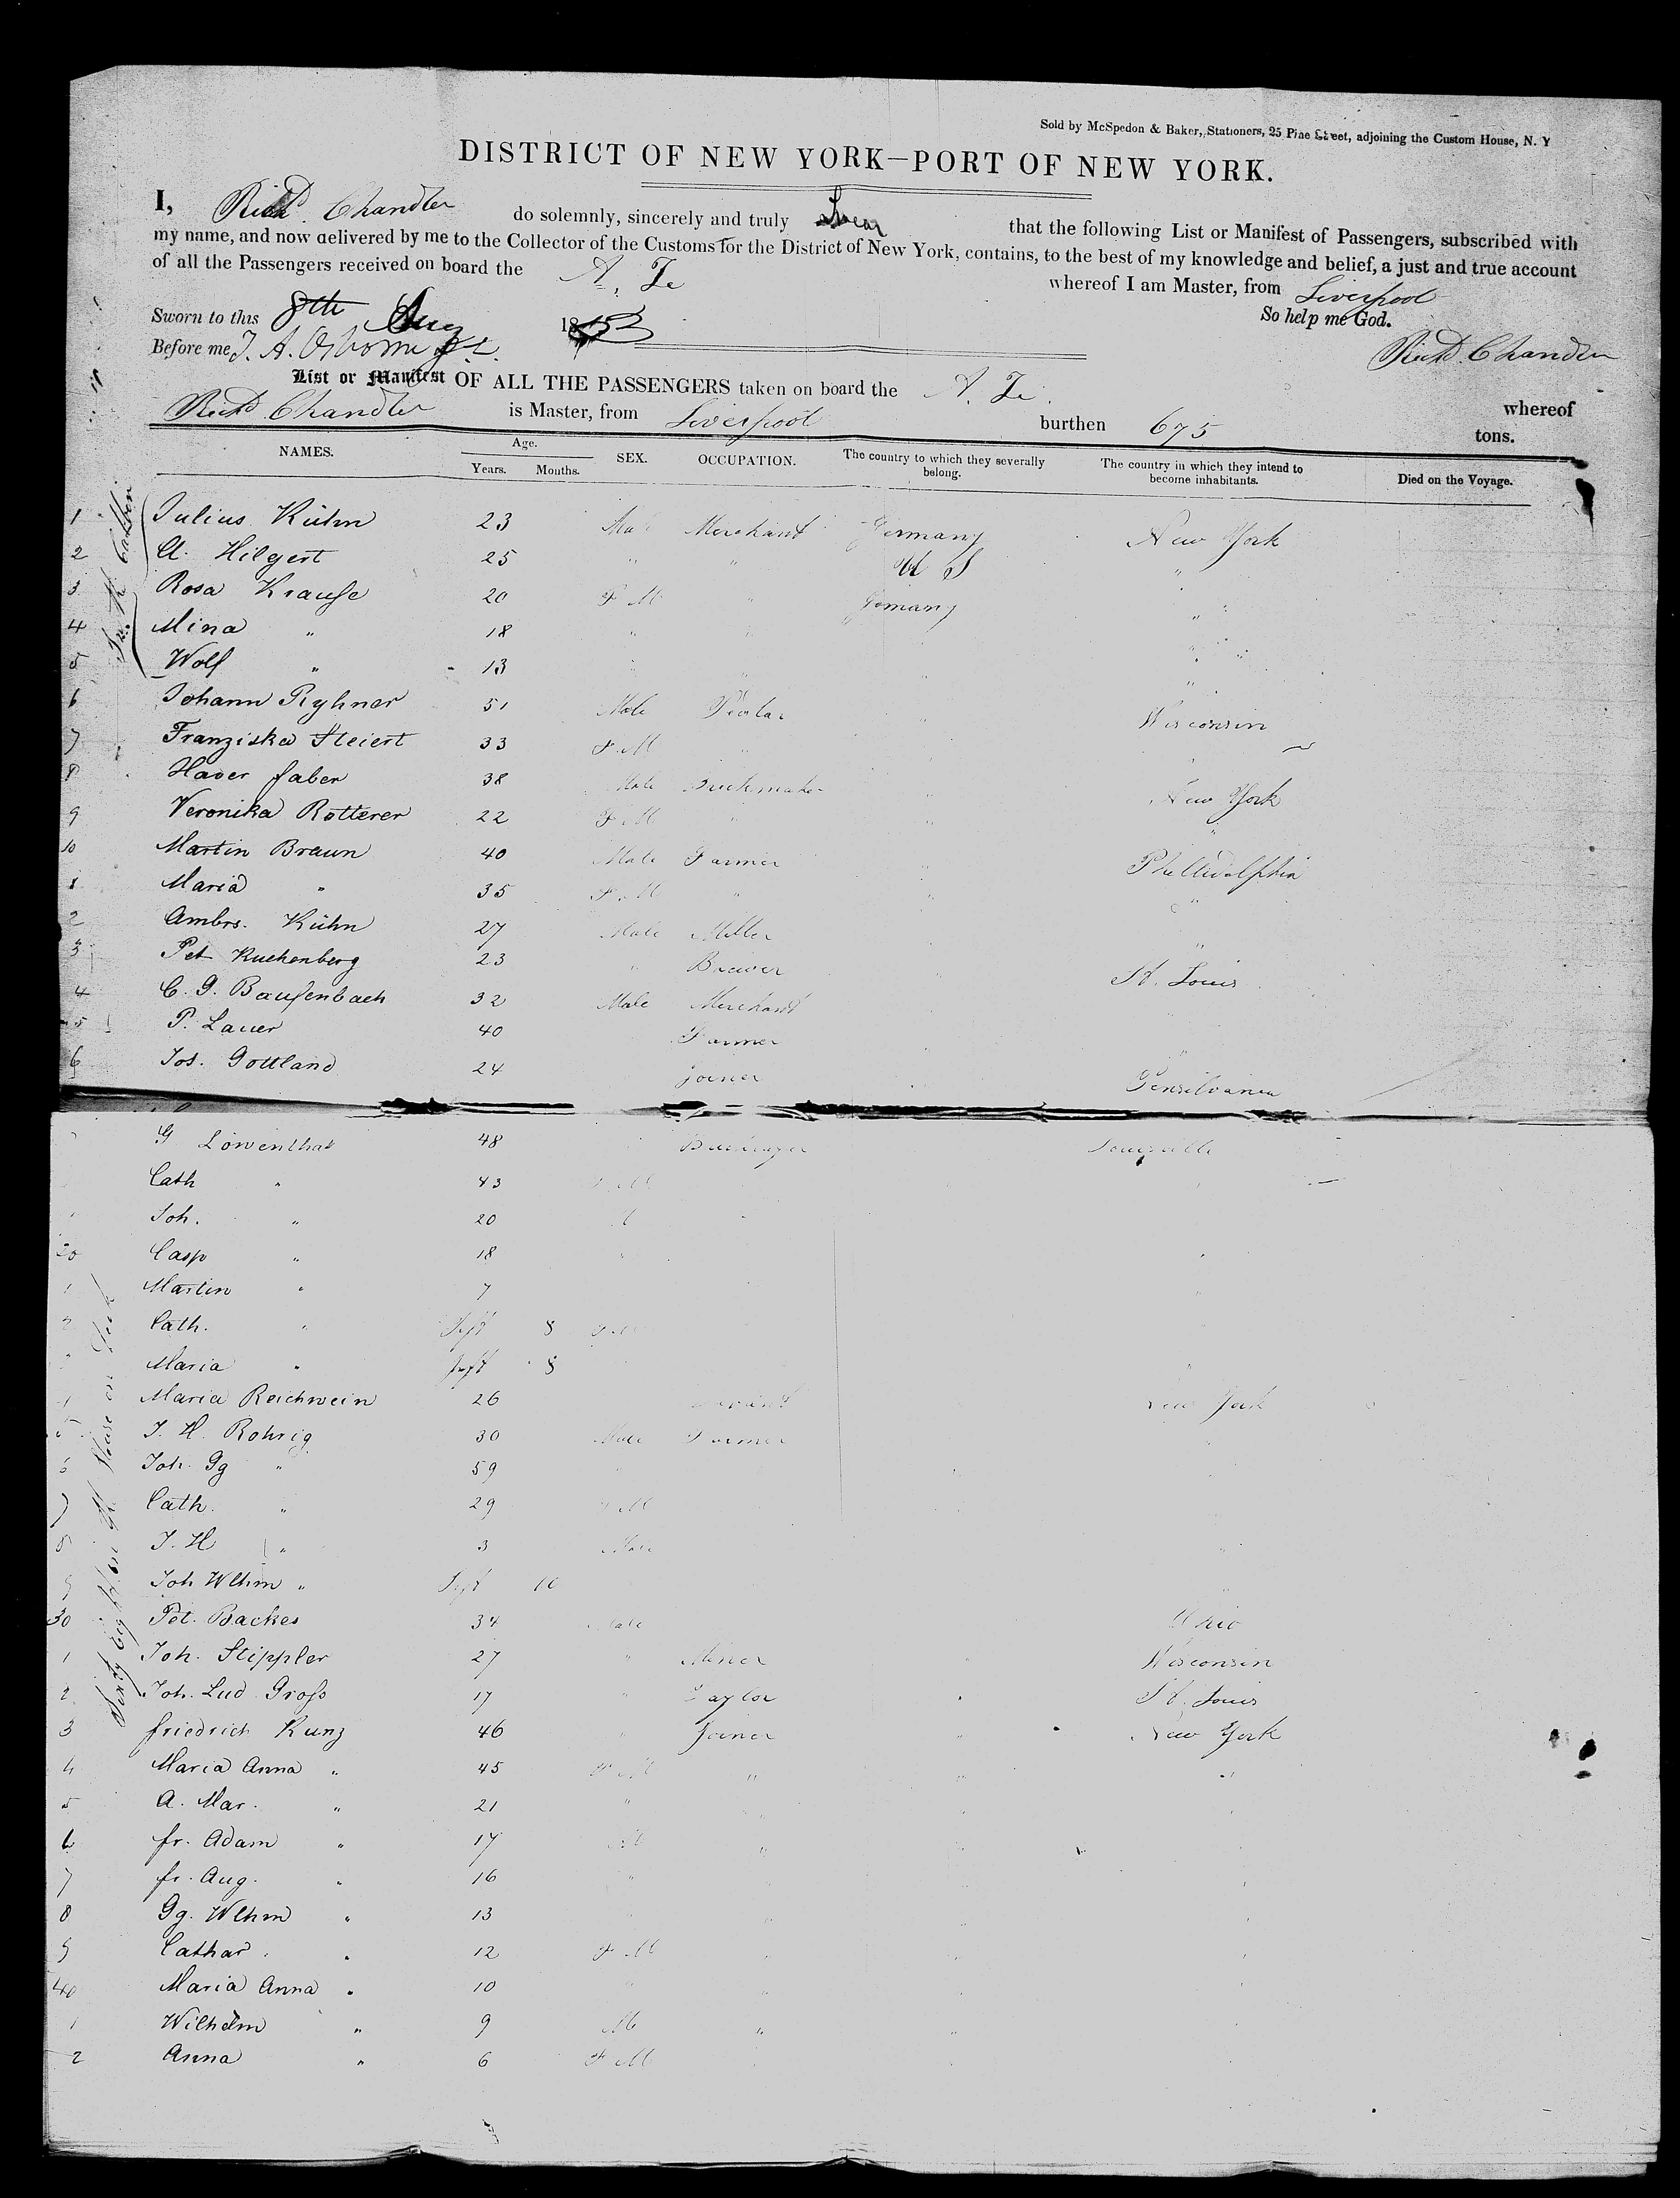 Sold by McSpedon & Baker, Stationers, 25 Pine Street, adjoining the Custom House, N. Y
DISTRICT OF NEW YORK—PORT OF NEW YORK.
I, Richd. Chandler do solemnly, sincerely and truly Swear that the following List or Manifest of Passengers, subscribed with
my name, and now delivered by me to the Collector of the Customs for the District of New York, contains, to the best of my knowledge and belief, a just and true account
of all the Passengers received on board the A. Z. whereof I am Master, from Liverpool
Sworn to this 8th Aug 1853 So help me God.
Before me Richd. Chandler
List or Manifest OF ALL THE PASSENGERS taken on board the A. Z. whereof
Richd Chandler is Master, from Liverpool burthen 675 tons.
NAMES. Age. Years. Months. SEX. OCCUPATION. The country to which they severally belong. The country in which they intend to become inhabitants. Died on the Voyage.
In the Cabin
1 Julius Kühn 23 Male Merchant Germany New York
2 A. Hilgert 25 " " U S "
3 Rosa Krause 20 F M " Gemany "
4 Mina " 18 " " "
5 Wolf " 13 " " "
6 Johann Ryhner 51 Male " Wisconsin
7 Franziska Steiert 33 F. M " "
8 Haver faber 38 Male New York
9 Veronika Rotterer 22 F. M " " "
10 Martin Braun 40 Male Farmer " Philladelphia
1 Maria " 35 F. M " " "
2 Ambrs. Kühn 27 Male Miller "
3 Pet Kuchenberg 23 " Brewer " St. Louis
4 C. G. Bausenbach 32 Male Merchant
5 P. Lauer 40 Farmer "
6 Jos. Gottland 24 Joiner Pensilvania
G Löwenthal 48
Cath " 43
Joh. " 20
20 Casp " 18
1 Martin " 7
2 Cath. " Inft 8
Maria " Inft 8
Maria Reichwein 26 New York
5 J. H. Rohrig 30 Male Farmer
6 Joh. Gg " 59
7 Cath. " 29 F M
8 J. H " 3 Male
9 Joh Wlhm " Inft 10
30 Pet. Backes 34 Male Ohio
1 Joh. Stippler 27 " Miner Wisconsin
2 Joh. Lud. Gross 17 " Taylor St. Louis
3 friedrich Kunz 46 " Joiner " New York
4 Maria Anna " 45 F M " " "
5 A. Mar. " 21 "
6 fr. Adam " 17 M "
7 fr. Aug. " 16 "
8 Gg. Wlhm " 13
9 Cathar. " 12 F M
40 Maria Anna " 10 "
1 Wilhelm " 9 M " "
2 Anna " 6 F M